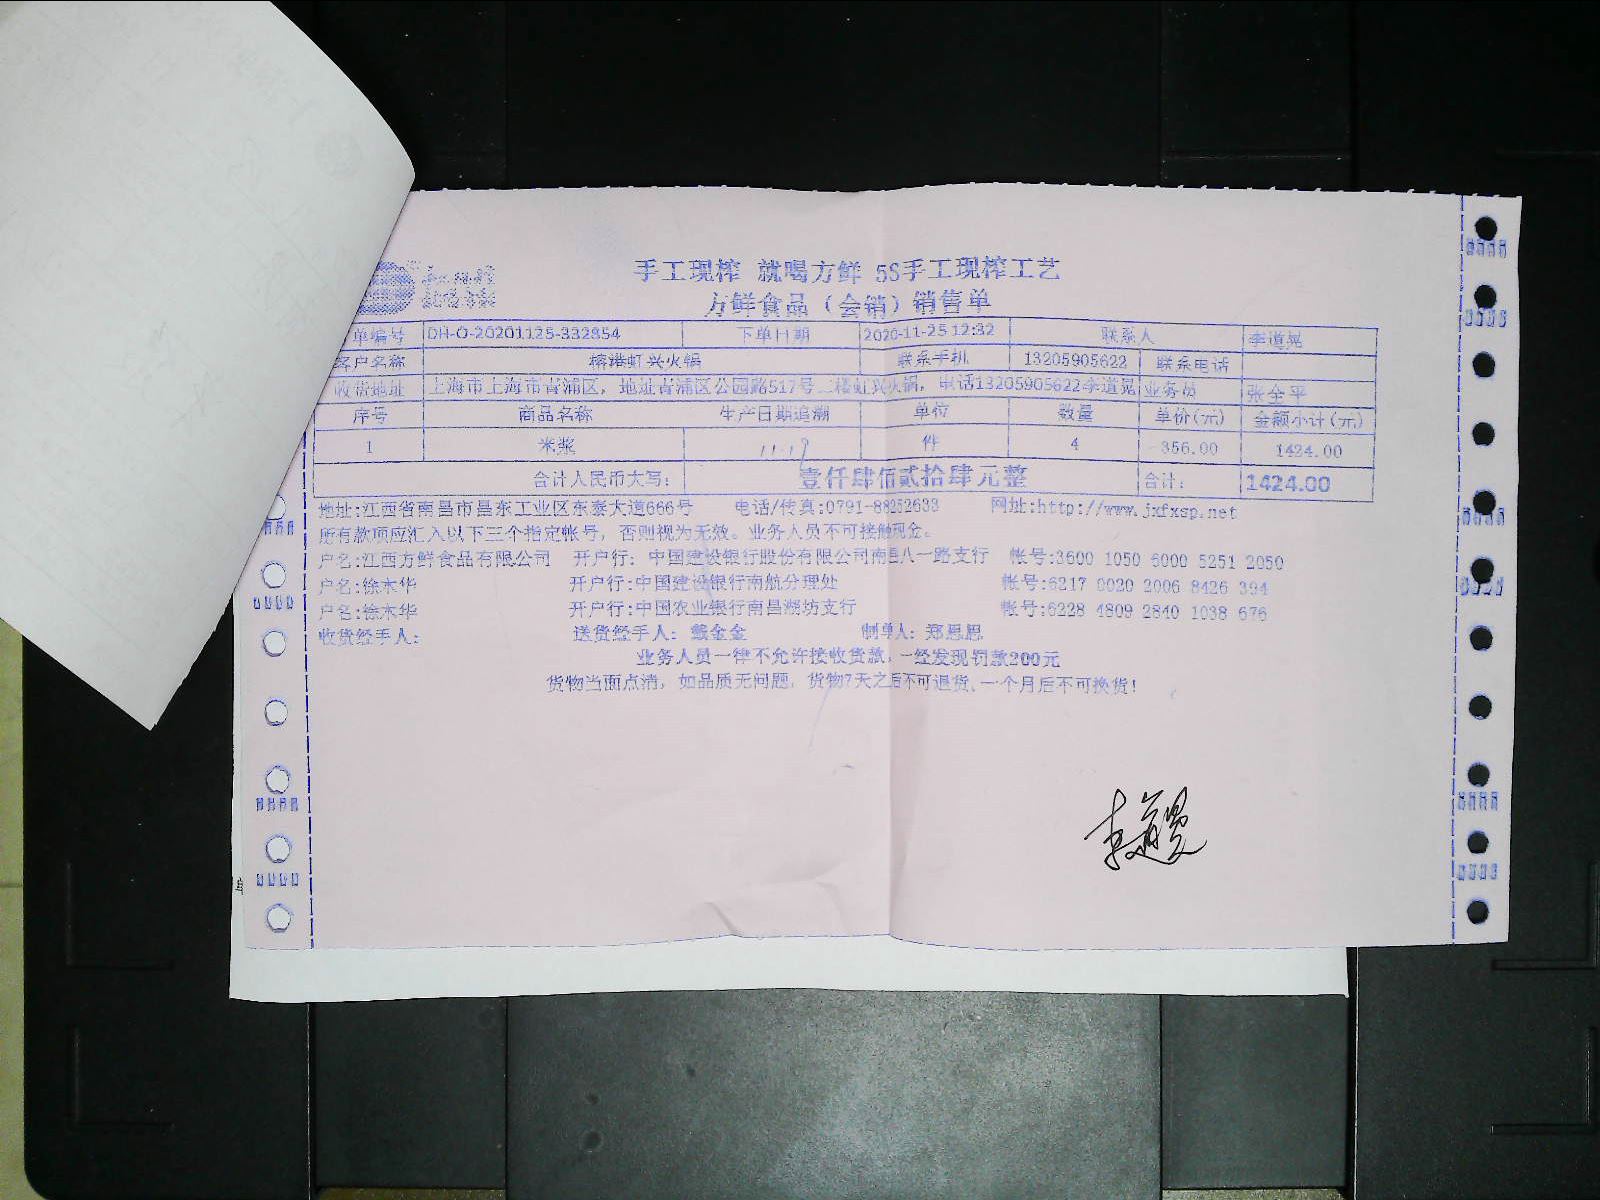 手工现榨 就喝方鲜 5S手工现榨工艺
方鲜食品（会销）销售单
单编号 DH-O-20201125-332854 下单日期 2020-11-25 12:32 联系人 李道晃
客户名称 榕港虹兴火锅 联系手机 13205905622 联系电话
收货地址 上海市上海市青浦区，地址青浦区公园路517号二楼虹兴火锅，电话13205905622李道晃 业务员 张全平
序号 商品名称 生产日期追溯 单位 数量 单价(元) 金额小计(元)
1 米浆 11.19 件 4 356.00 1424.00
合计人民币大写： 壹仟肆佰贰拾肆元整 合计： 1424.00
地址:江西省南昌市昌东工业区东泰大道666号 电话/传真:0791-88252633 网址:http://www.jxfxsp.net
所有款项应汇入以下三个指定帐号，否则视为无效。业务人员不可接触现金。
户名:江西方鲜食品有限公司 开户行: 中国建设银行股份有限公司南昌八一路支行 帐号:3600 1050 6000 5251 2050
户名:徐木华 开户行:中国建设银行南航分理处 帐号:6217 0020 2006 8426 394
户名:徐木华 开户行:中国农业银行南昌湖坊支行 帐号:6228 4809 2840 1038 676
收货经手人: 送货经手人: 戴金金 制单人: 郑思思
业务人员一律不允许接收货款，一经发现罚款200元
货物当面点清，如品质无问题，货物7天之后不可退货，一个月后不可换货！
李道晃
单